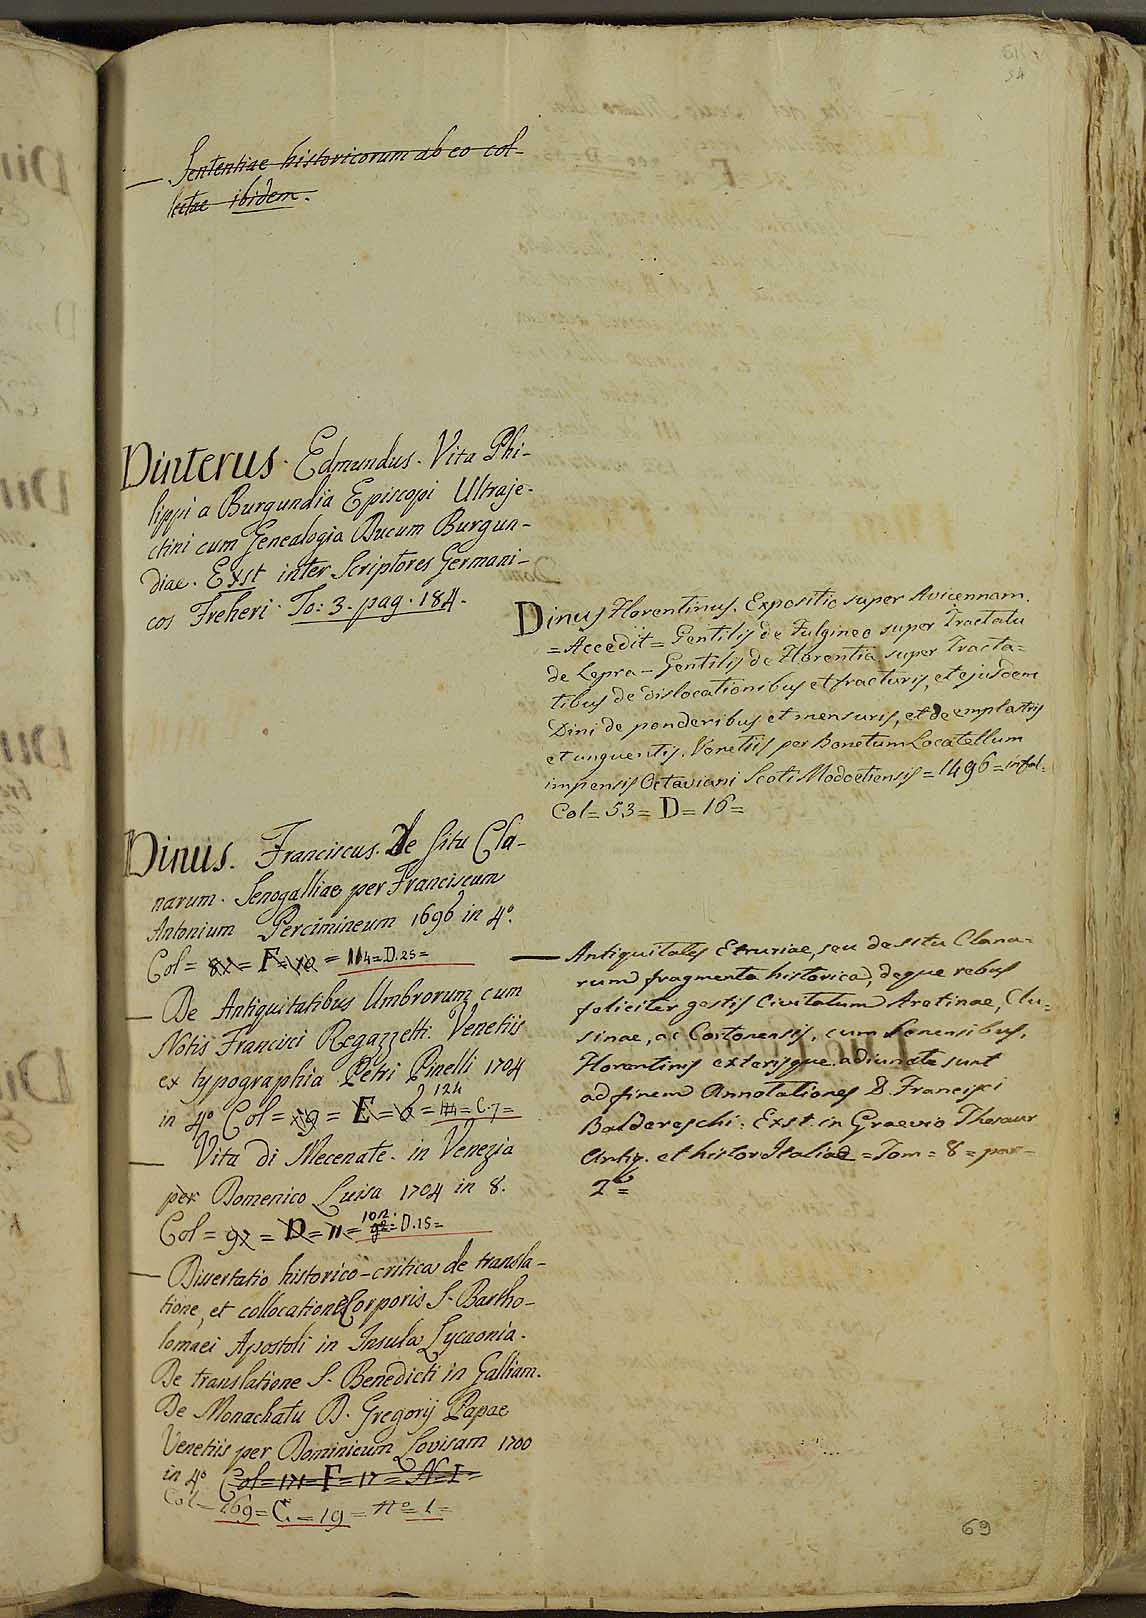 54
— Sententiae historicorum ab eo col-
lectae ibidem.
Dinterus. Edmundus. Vita Phi-
lippi a Burgundia Episcopi Ultraje-
ctini cum Genealogia Ducum Burgun-
diae. Exst inter Scriptores Germani-
cos Freheri. To: 3. pag. 184.
Dinus Florentinus. Expositio super Avicennam.
= Accedit = Gentilis de Fulgineo super Tractatu
de Lepra - Gentilis de Florentia super Tracta=
tibus de dislocationibus et fracturis, et ejusdem
Dini de ponderibus et mensuris, et de emplastris
et unguentis. Venetiis per Bonetum Locatellum
impensis Octaviani Scoti Modoetiensis = 1496 = in fol.
Col = 53 = D = 16 =
Dinius. Franciscus. De Situ Cla-
narum. Senogalliae per Franciscum
Antonium Percimineum 1696 in 4º.
Col = 82 = F = 10 = 114 = D. 25 =
— De Antiquitatibus Umbrorum cum
Notis Francisci Regazzetti. Venetiis
ex typographia Petri Pinelli 1704
124
in 4º Col = 19 = E = 6 = 114 = C. 7 =
— Vita di Mecenate. in Venezia
per Domenico Luisa 1704 in 8.
102
Col = 92 = D = 11 = 92 = D. 15 =
— Dissertatio historico-critica de transla-
tione, et collocatione Corporis S. Bartho-
lomaei Apostoli in Insula Lycaonia.
De translatione S. Benedicti in Galliam.
De Monachatu D. Gregorij Papae
Venetiis per Dominicum Lovisam 1700
in 4º Col = 171 = F = 17 = N = I =
Col = 169 = C. = 19 = nº = 1 =
— Antiquitates Etruriae, seu de situ Clana=
rum fragmenta historica, deque rebus
foliciter gestis Civitatum Aretinae, Clu=
sinae, ac Cortonensis, cum Senensibus,
Florentinis exterisque adiunctae sunt
ad finem Annotationes D. Francisci
Baldereschi: Exst in Graevio Thesaur
Antiq. et histor Italiae = Tom = 8 = par-
2ª =
69